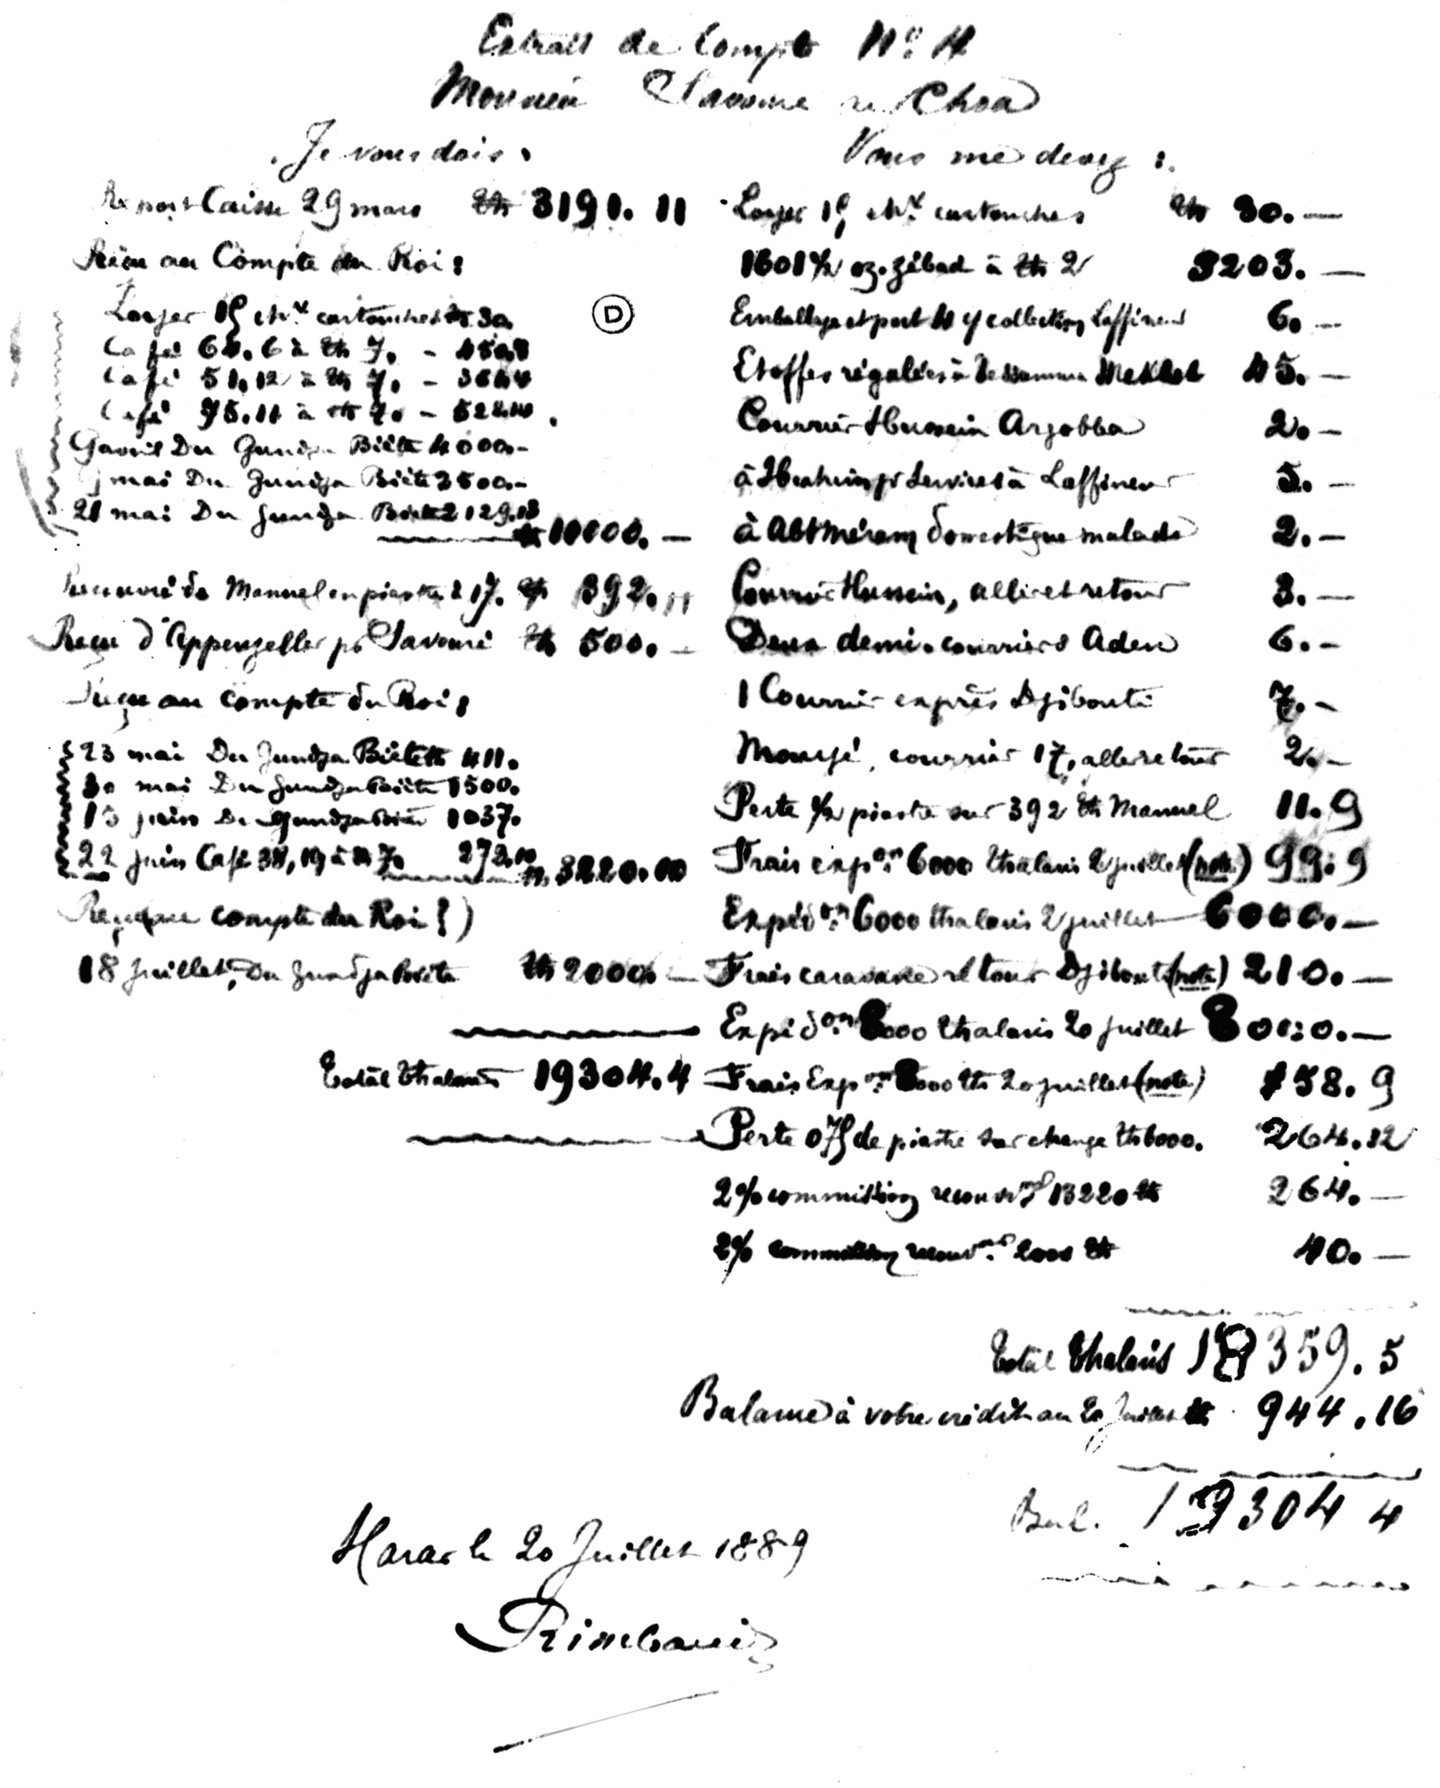 Extrait de Compte No 4
Monsieur Savouré au Choa
Je vous dois :
Report Caisse 29 mars th 3191. 11
Reçu au Compte du Roi :
Loyer 15 chx cartouches th 30.
Café 64.6 à th 7. - 450.8
Café 51.12 à th 7. - 364.4
Café 75.11 à th 7. - 528.10
9 avril Du Gundja Biéte 4000.-
mai Du Gundja Biéte 2500.-
21 mai Du Gundja Biéte 2129.13
th 10000. —
de Manuel en piastres à 17. th 392. 11
Reçu d'Appenzeller pr Savouré th 500. —
Reçu au compte du Roi :
23 mai Du Gundja Biéte th 411.
30 mai Du Gundja Biéte 1500.
13 juin Du Gundja Biéte 1037.
22 juin Café 38,19 à th 7. 272.10
th. 3220.10
Reçu au compte du Roi :)
18 juillet, Du Gundja Biéte th 2000 —
Total thalaris 19304.4
D
Vous me devez :
Loyer 15 chx cartouches th 30. —
1601 1/2 oz. zébad à th 2 3203. —
Emballage et port 4 collection Laffineur 6. —
Etoffes régalées à Tessamma Mekbeb 45. —
Courrier Hussein Argobba 2. —
à Ibrahim pr services à Laffineur 5. —
à Abt Meram domestique malade 2. —
Courrier Hussein, aller et retour 3. —
Deux demi-courriers Aden 6. —
1 Courrier exprès Djibouti 7. —
, courrier 17, aller retour 2. —
Perte 1/2 piastre sur 392 th Manuel 11. 9
Frais expon 6000 thalaris 2 juillet (note) 99. 9
Expédon 6000 thalaris 2 juillet 6000. —
Frais caravane retour Djibouti (note) 210. —
Expédon 8000 thalaris 20 juillet 8000. —
Frais Expon 8000 th 20 juillet (note) 158. 9
Perte 0,75 de piastre sur change th 6000. 264.12
2% commission recouvt 13220 th 264. —
2% commission recouvt 2000 th 40. —
Total thalaris 18359. 5
Balance à votre crédit au 20 Juillet th 944. 16
Bal. 19304 4
Harar le 20 Juillet 1889
Rimbaud